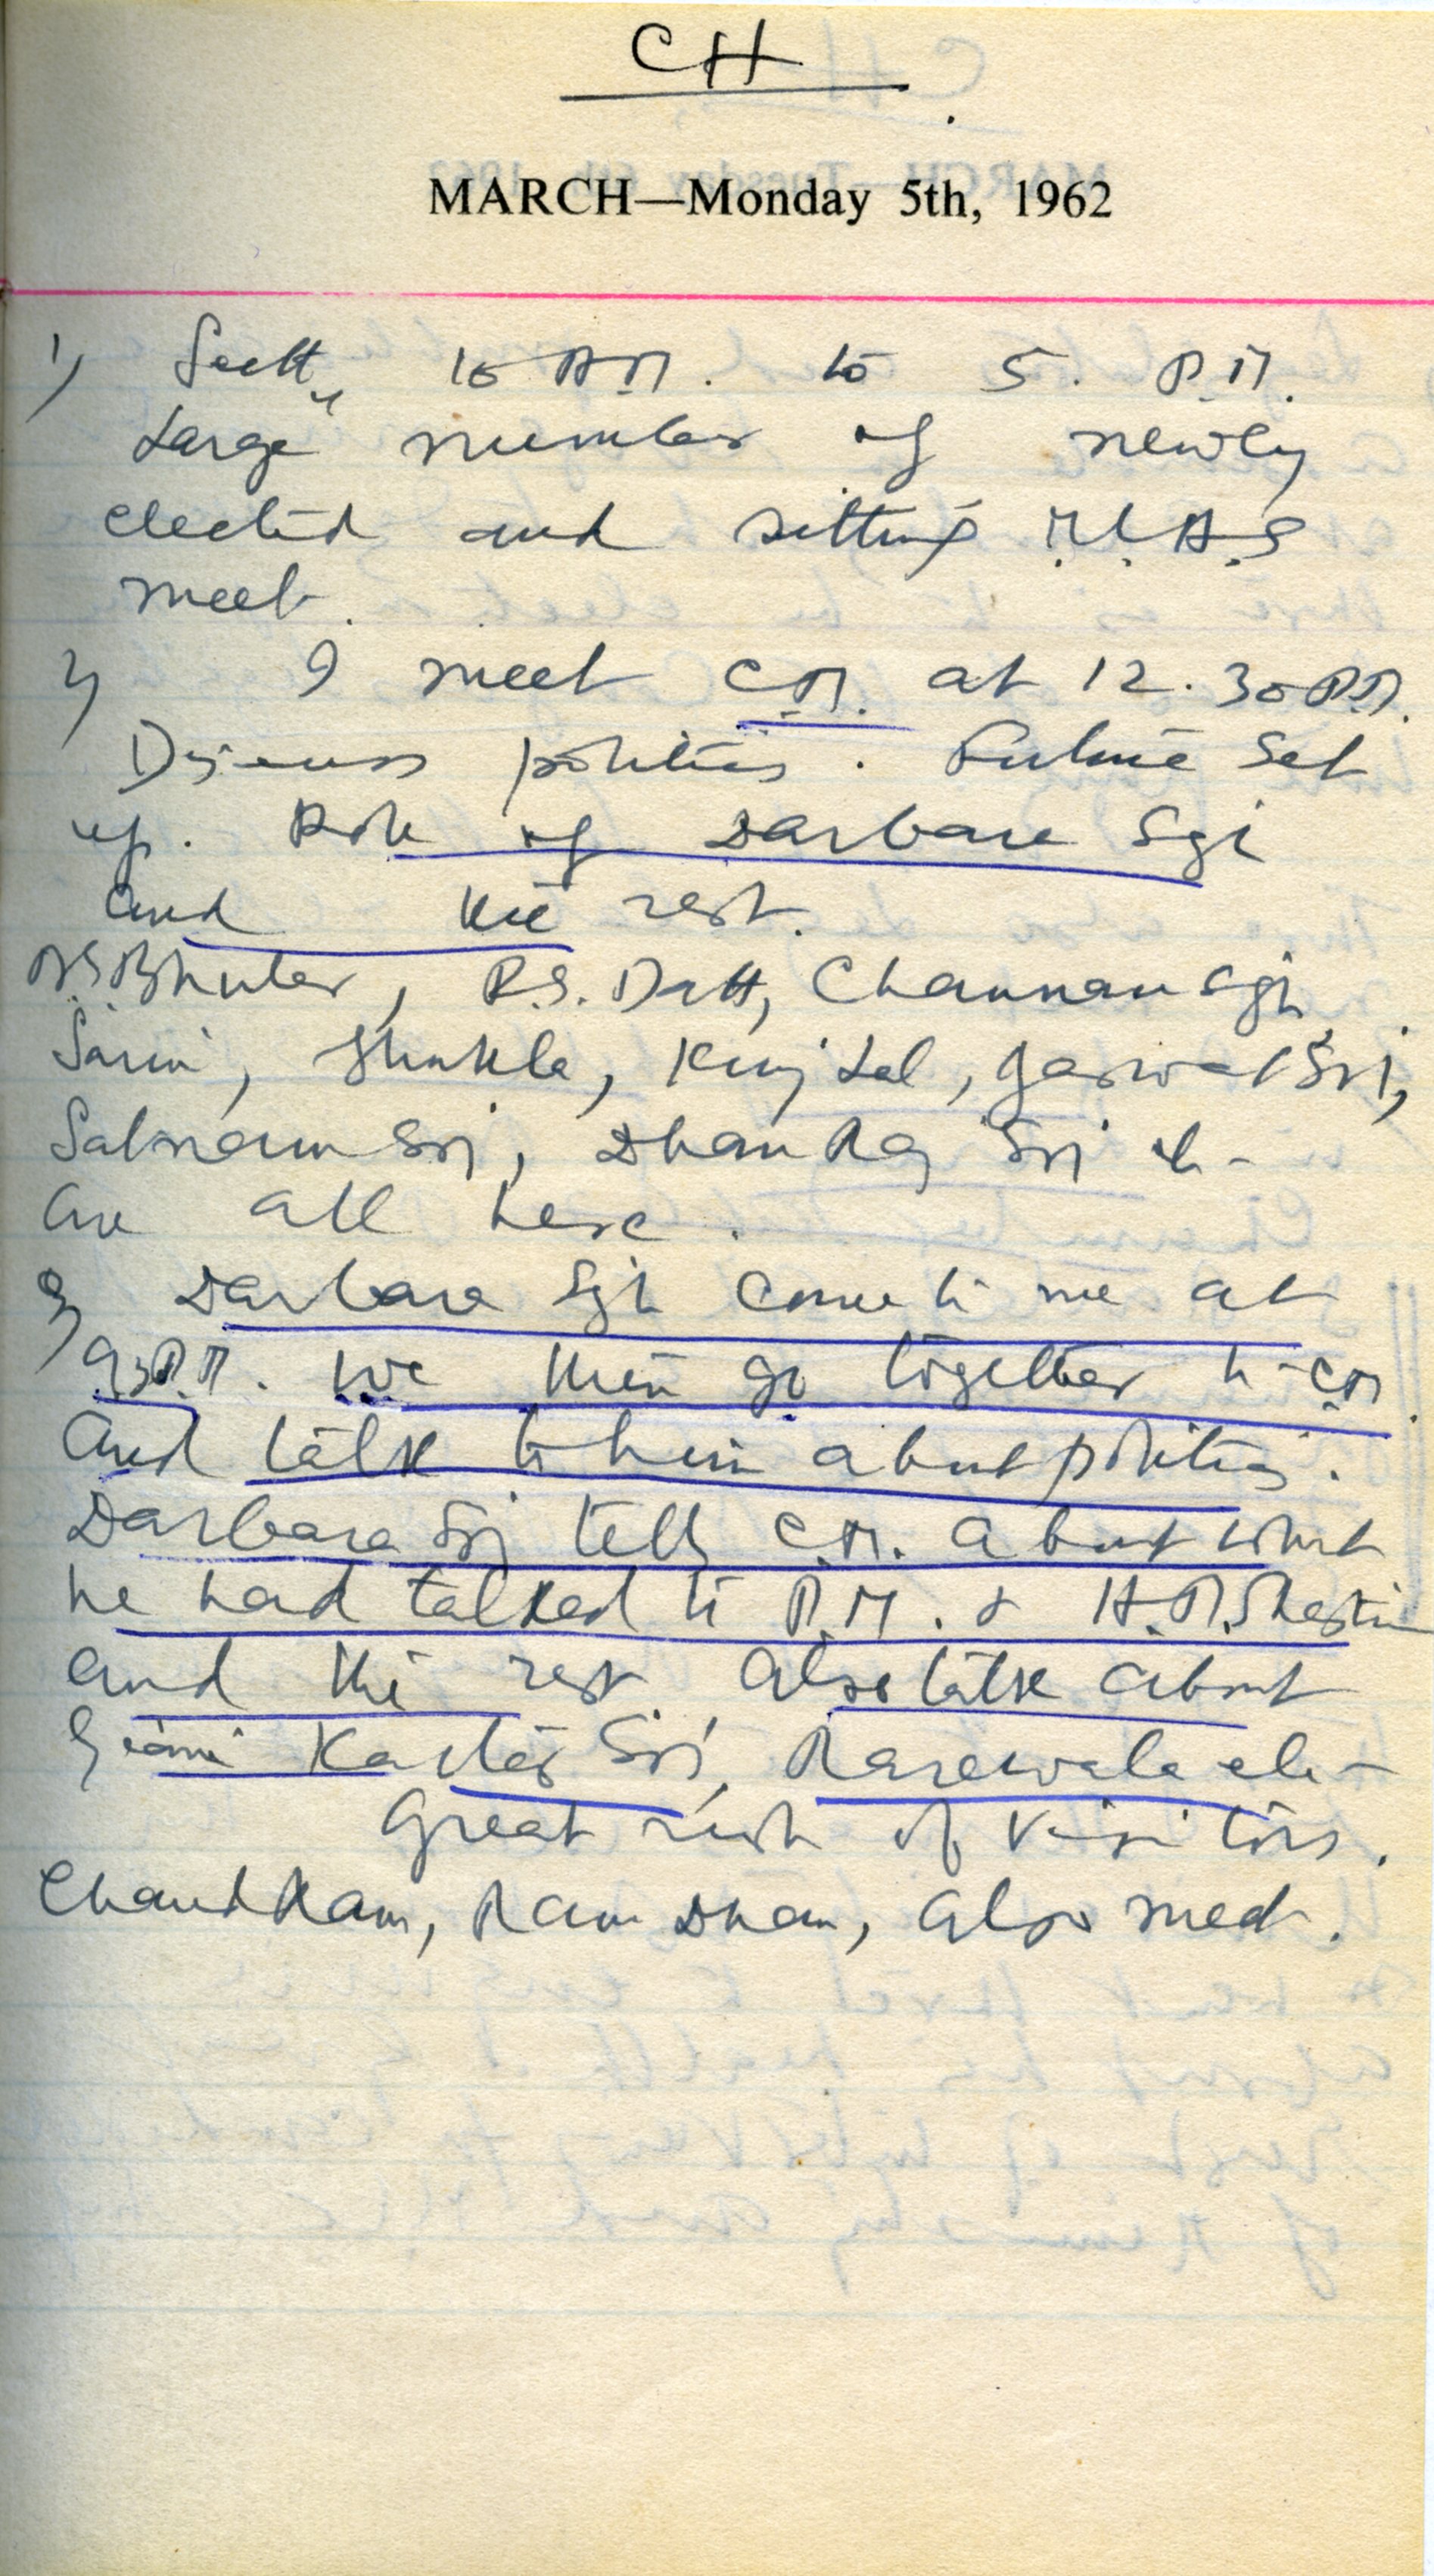 CH
MARCH—Monday 5th, 1962
1) Sectt. 10 A.M. to 5. P.M.
Large number of newly
elected and sitting M.L.A.S
meet.
2) I meet C.M. at 12.30 P.M.
Discuss politics. Future Set
up. Role of Darbara Sgh
and the rest.
Bhuler, R.S. Datt, Channan Sgh
Sarin, Shukla, Lal, Jaswant Sri,
Satnam Sri, Dhan Raj Sri etc
are all here.
3) Darbara Sgh come to me at
9.30 P.M. We then go together to C.M.
and talk to him about politics.
Darbara Sri tells C.M. about what
he had talked to P.M. & Shastri
and the rest. Also talk about
Giani Kartar Sri, Rarewala etc
Great rush of visitors.
Chand Ram, Ram Dhan, also meet.